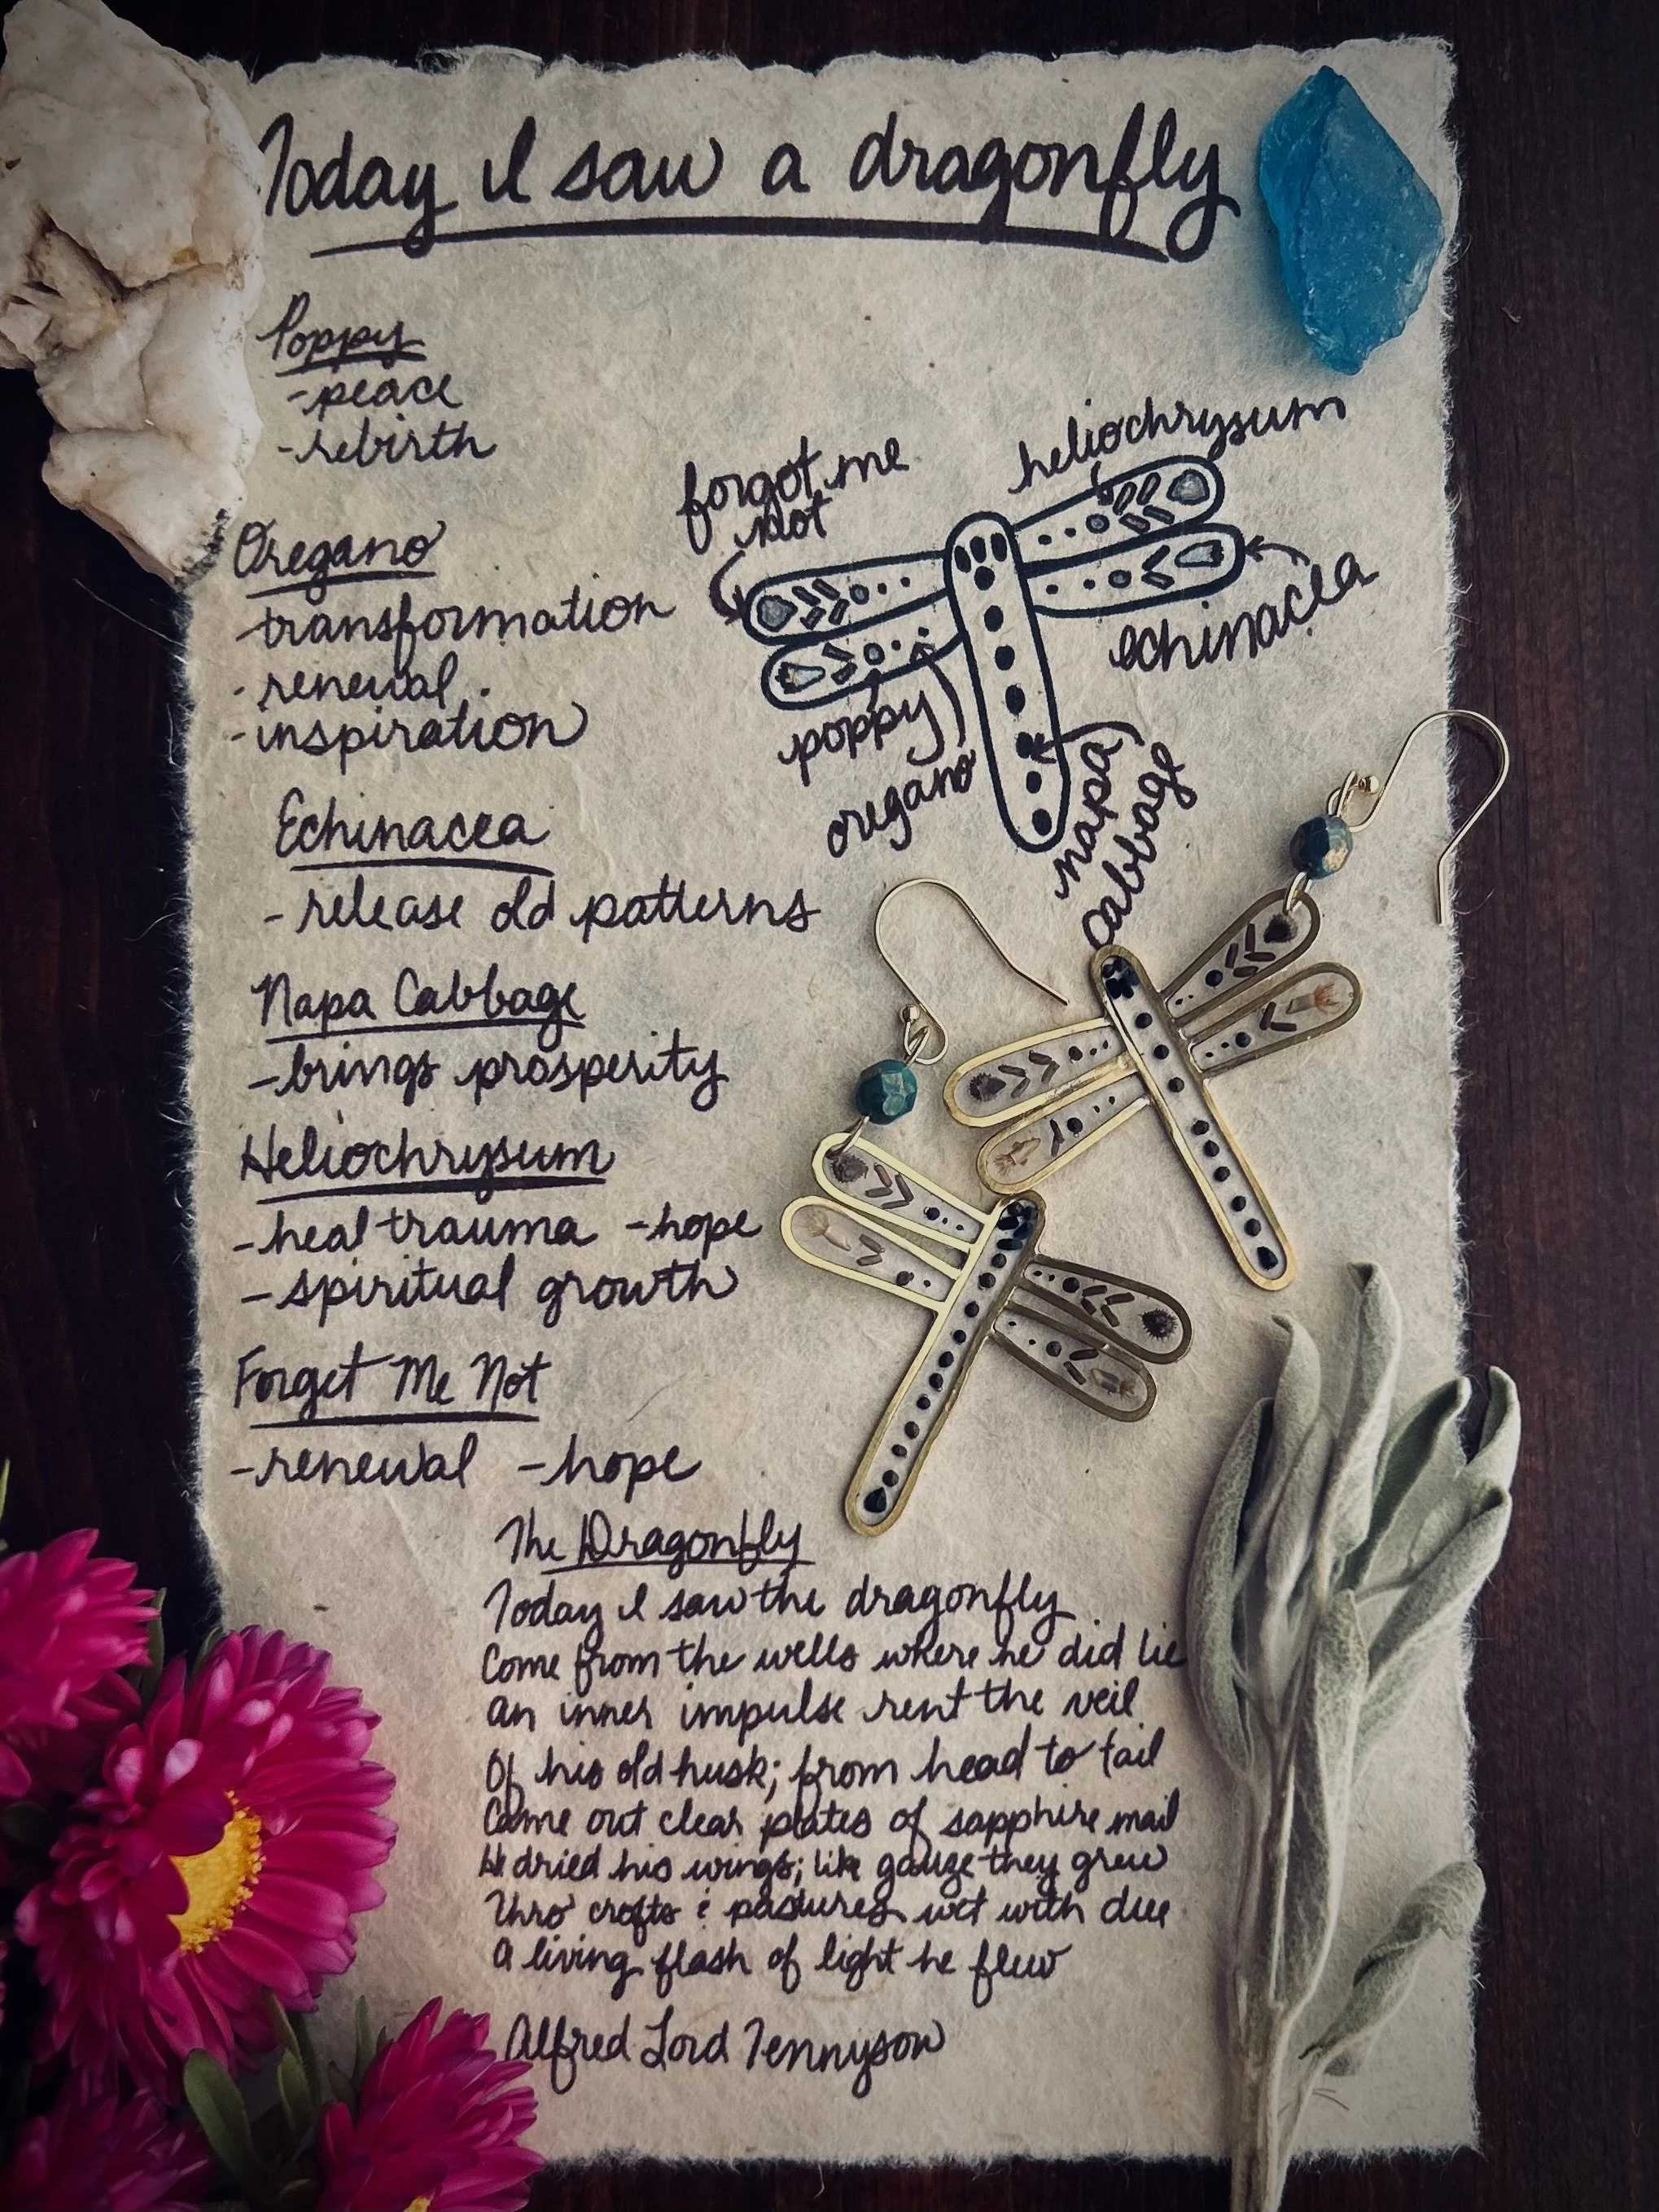 Today I saw a dragonfly
Poppy
-peace
-rebirth
forgot me
not
heliochrysum
echinacea
poppy
oregano
napa
cabbage
Oregano
-transformation
-renewal
-inspiration
Echinacea
-release old patterns
Napa Cabbage
-brings prosperity
Heliochrysum
-heal trauma -hope
-spiritual growth
Forget Me Not
-renewal -hope
The Dragonfly
Today I saw the dragonfly
Come from the wells where he did lie
An inner impulse rent the veil
Of his old husk; from head to tail
Came out clear plates of sapphire mail
He dried his wings; like gauze they grew
Thro' crofts & pastures wet with dew
A living flash of light he flew
Alfred Lord Tennyson